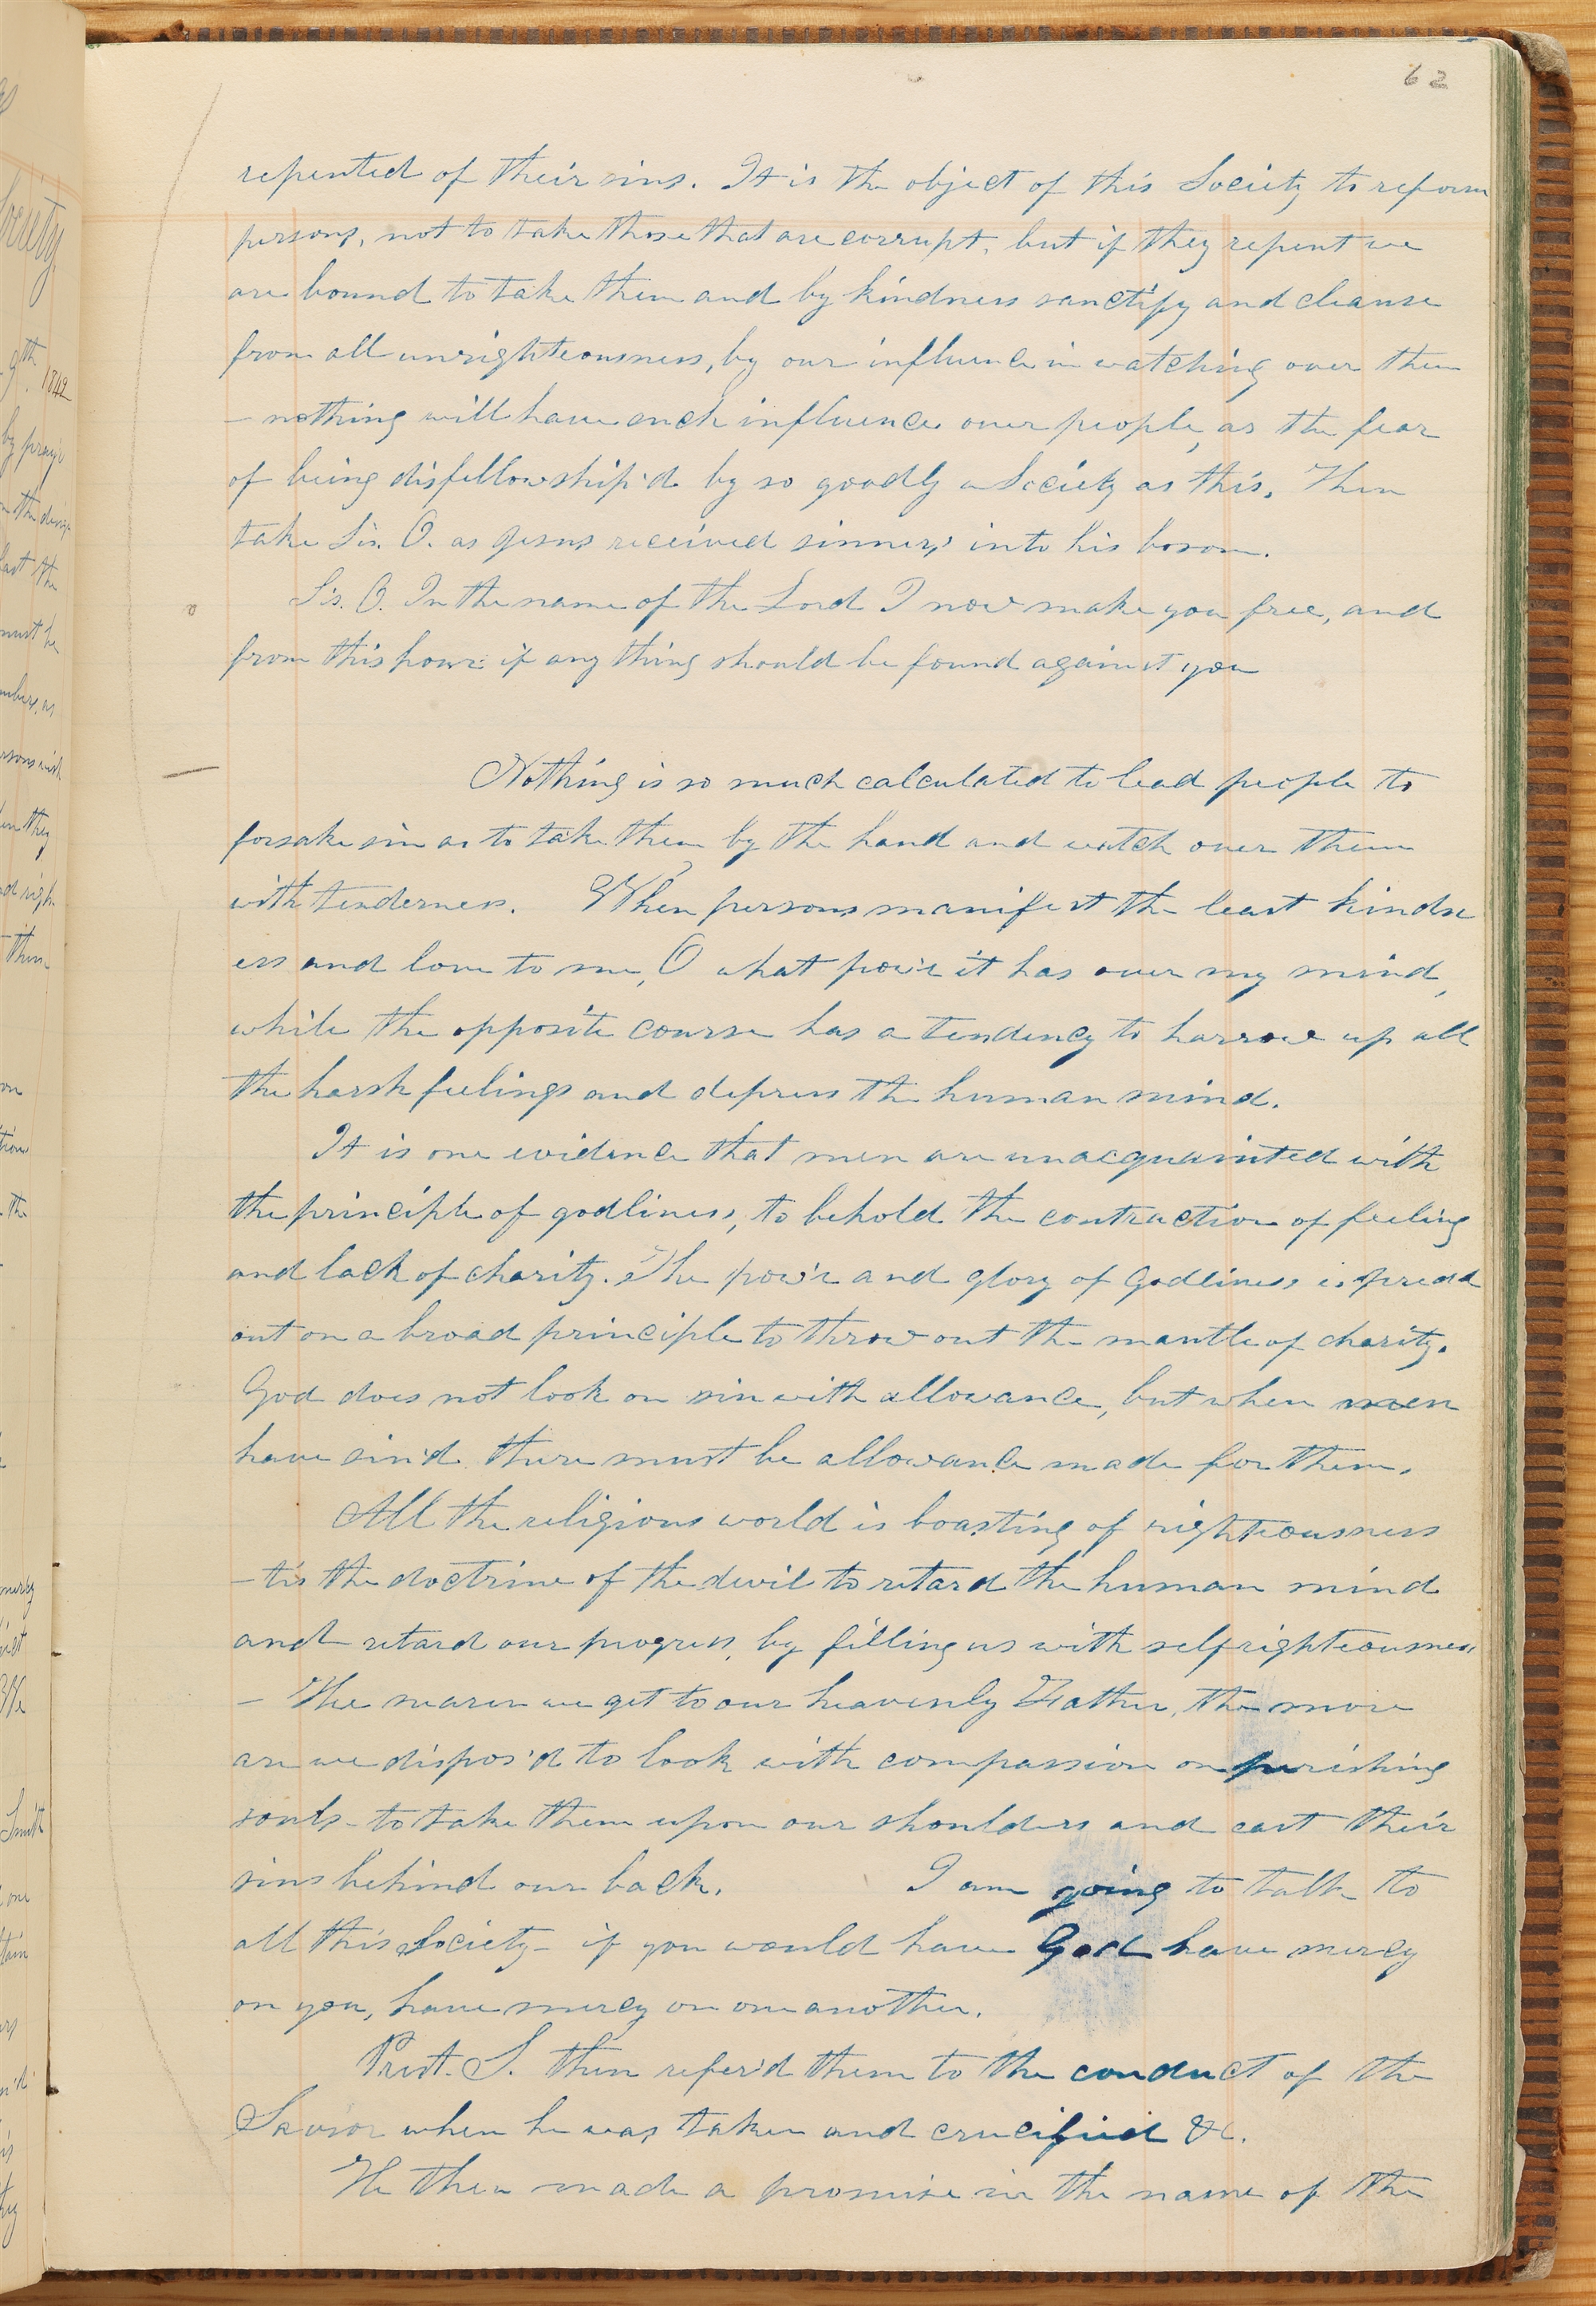 62
repented of their sins. It is the object of this Society to reform
persons, not to take those that are corrupt, but if they repent we
are bound to take them and by kindness sanctify and cleanse
from all unrighteousness, by our influence in watching over them
– nothing will have such influence over people, as the fear
of being disfellowship'd by so goodly a Society as this. Then
take Sis. O. as Jesus received sinners into his bosom.
Sis. O. In the name of the Lord I now make you free, and
from this hour if any thing should be found against you
Nothing is so much calculated to lead people to
forsake sin as to take them by the hand and watch over them
with tenderness. When persons manifest the least kindn
ess and love to me, O what pow'r it has over my mind,
while the opposite course has a tendency to harrow up all
the harsh feelings and depress the human mind.
It is one evidence that men are unacquainted with
the principle of godliness, to behold the contraction of feeling
and lack of charity. The pow'r and glory of Godliness is spread
out on a broad principle to throw out the mantle of charity.
God does not look on sin with allowance, but when men
have sin'd there must be allowance made for them.
All the religious world is boasting of righteousness
– tis the doctrine of the devil to retard the human mind
and retard our progress, by filling us with selfrighteousness
– The nearer we get to our heavenly Father, the more
are we dispos'd to look with compassion on perishing
souls – to take them upon our shoulders and cast their
sins behind our back. I am going to talk to
all this Society – if you would have God have mercy
on you, have mercy on one another.
Prest. S. then refer'd them to the conduct of the
Savior when he was taken and crucified &c.
He then made a promise in the name of the
9th 1842
Society
by pray'r
the design
last the
must be
they
them
the
Smith
one